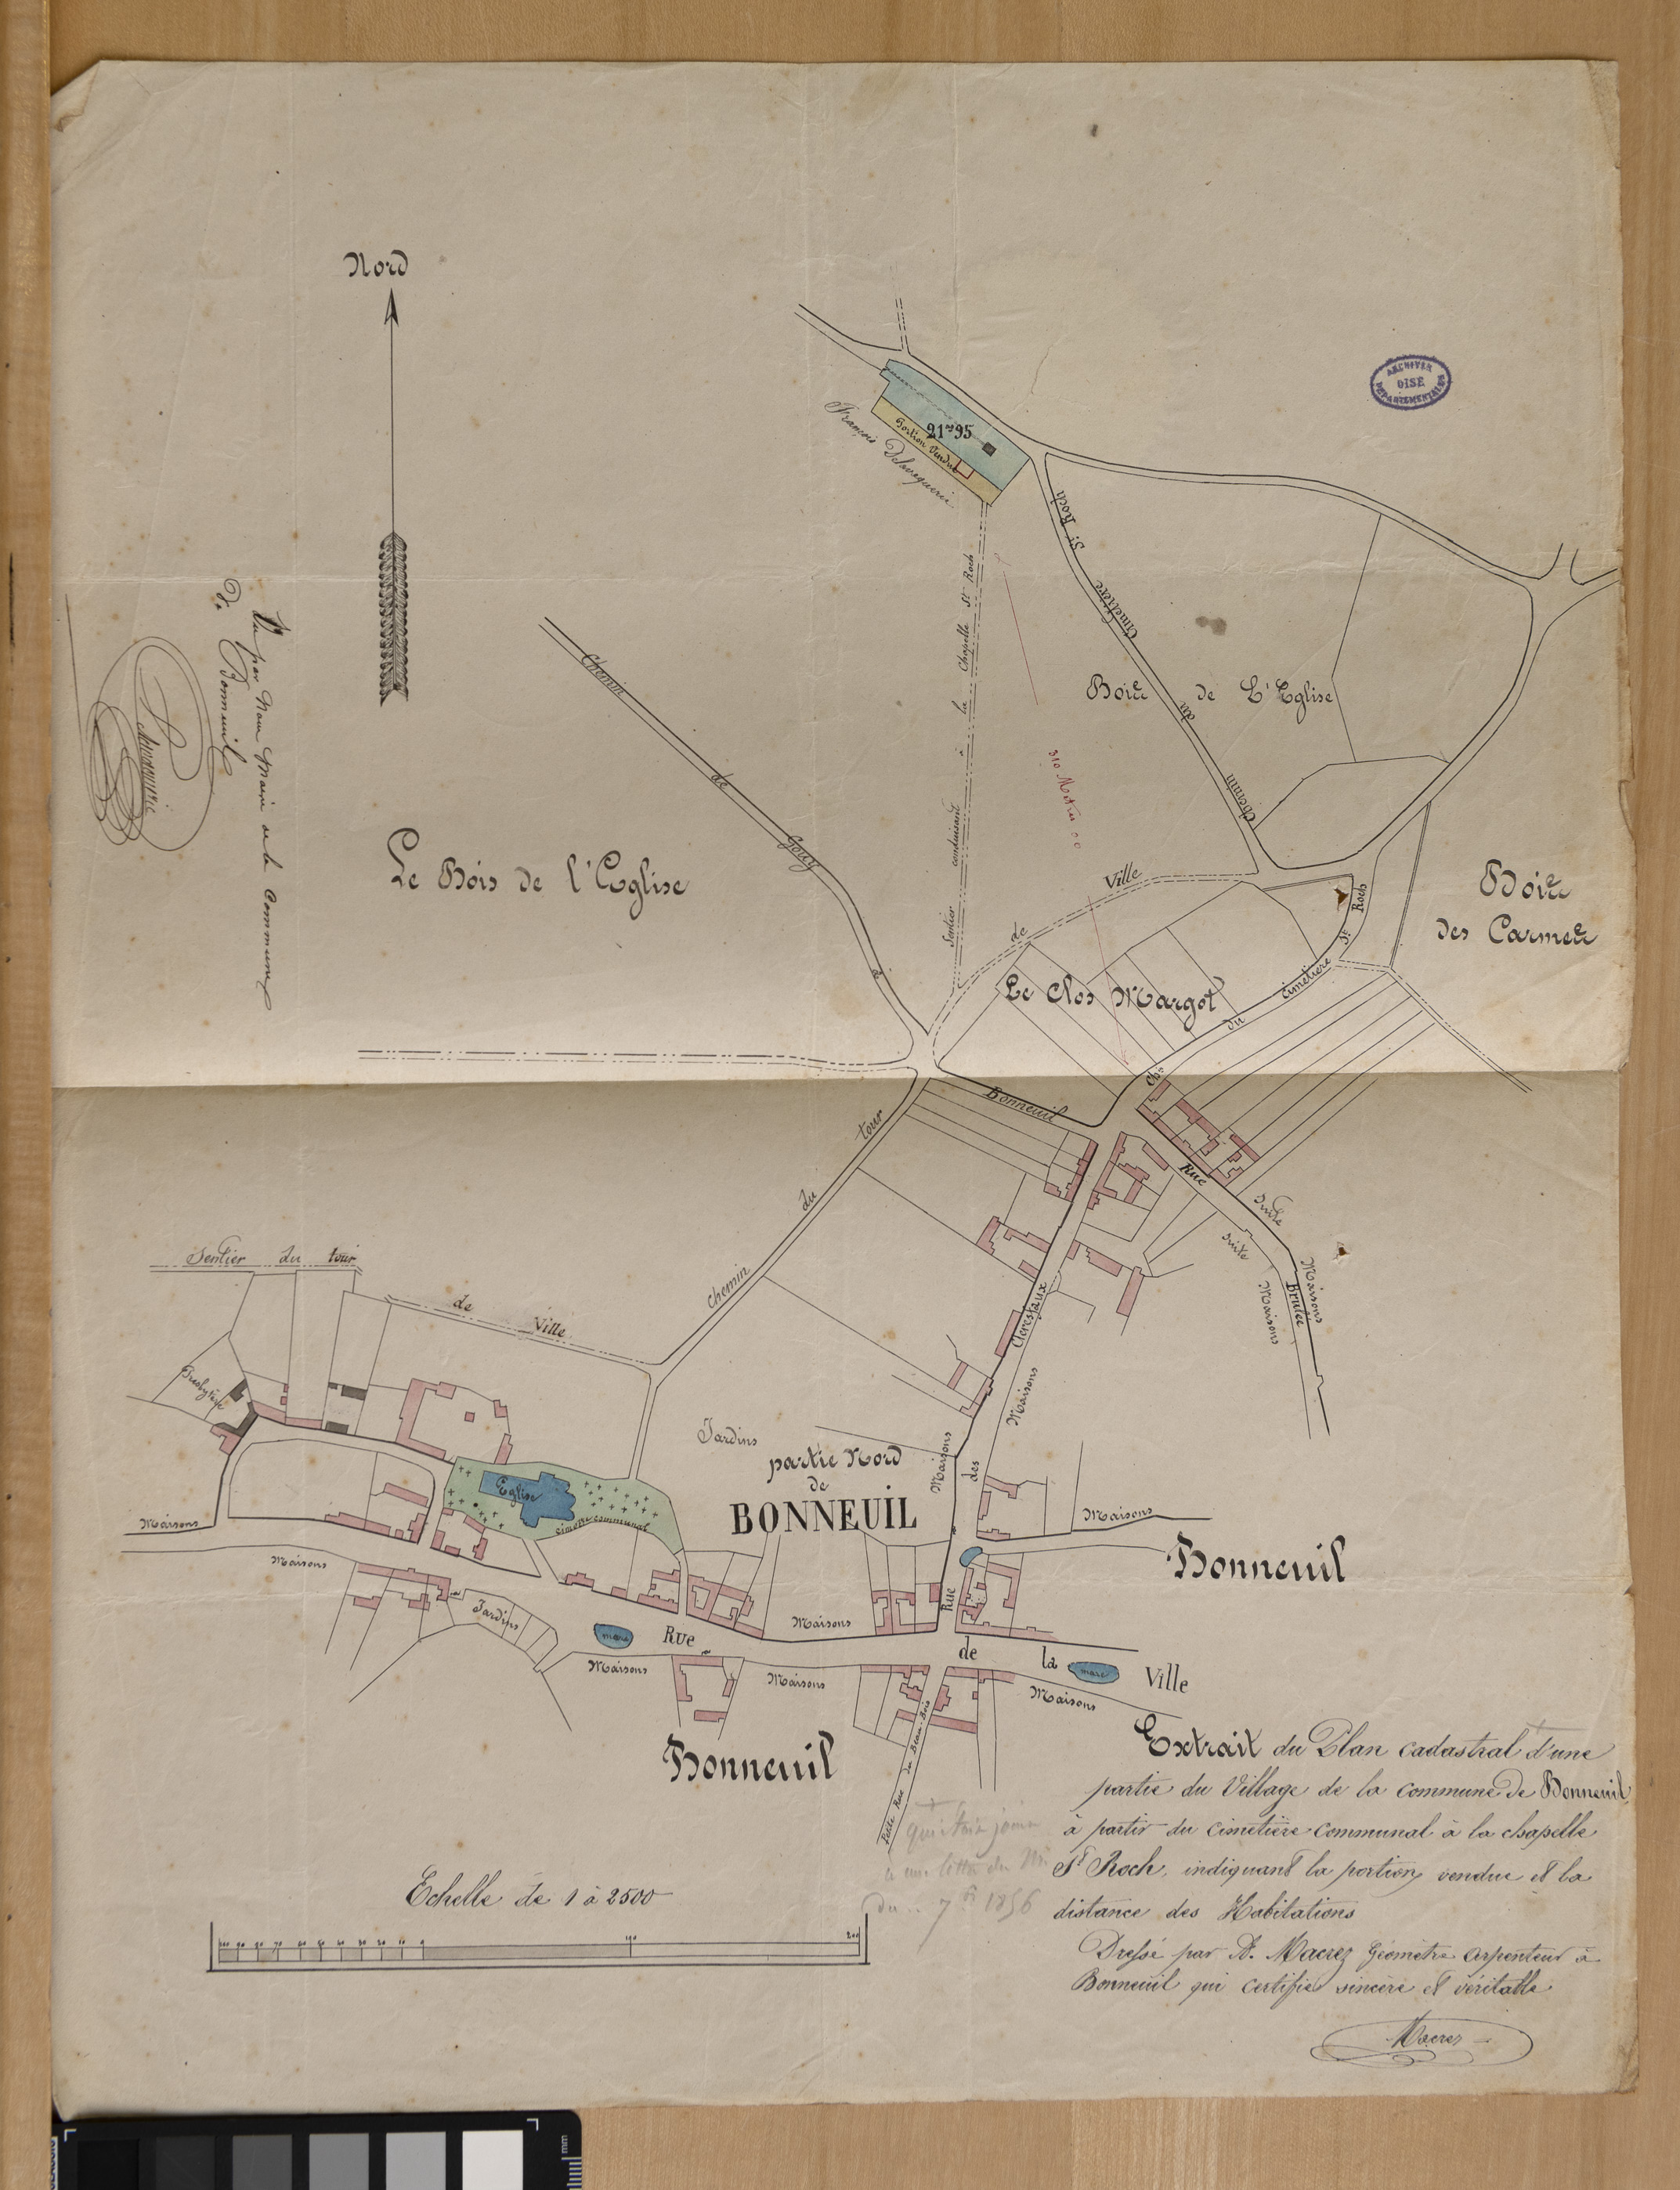 Nord
ARCHIVES
OISE
DEPARTEMENTALES
21ares95
Portion Vendue
François
Chemin du Cimetière St Roch
Sentier conduisant à la Chapelle St Roch
Bois de L'Eglise
310 Metres 00
Chemin de Gouy à Bonneuil
Le Bois de l'Eglise
Vu par Nous Maire de la Commune
De Bonneuil
Bois
des Carmes
Chemin du tour de Ville
Le Clos Margot
Chin du Cimetière St Roch
Rue Brulée
Suite
Suite
Maisons
Maisons
Sentier du tour de Ville
Presbytère
Jardins
partie Nord
de
BONNEUIL
Rue des Clerestaux
Maisons
Maisons
Eglise
cimetre communal
Maisons
Maisons
Maisons
Bonneuil
Jardins
mare
Rue de la Ville
Maisons
Maisons
Maisons
Maisons
mare
Petite Rue du Beau Bois
Bonneuil
Extrait du Plan cadastral d'une
partie du Village de la commune de Bonneuil,
à partir du cimetière communal à la chapelle
St Roch, indiquant la portion vendue et la
distance des Habitations
Dressé par A. Macrez Géomètre arpenteur à
Bonneuil qui certifie sincère et véritable
Macrez
qui était joint
à une lettre du
du 7 1856
Echelle de 1 à 2500
100 90 80 70 60 50 40 30 20 10 0 100 200
mm